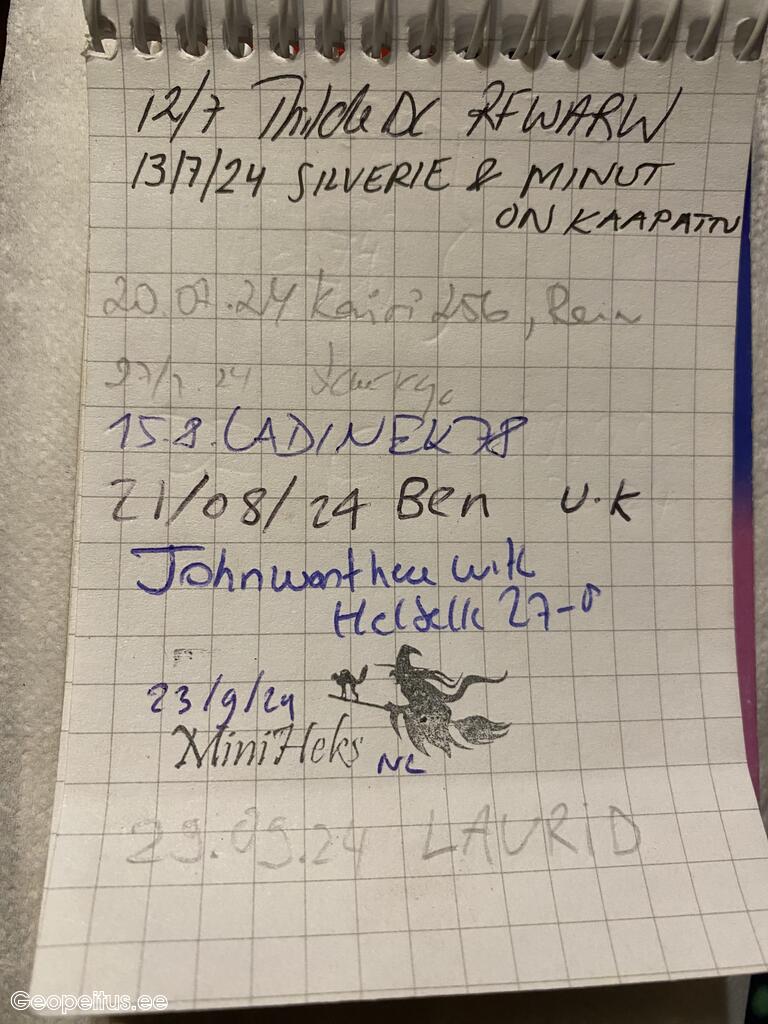 12/7 ThildeDC
13/7/24 SILVERIE & MINUT
ON KAAPATTU
20.07.24 Kairi256, Rein
27/7.24
15.8. LADINEK78
21/08/24 Ben U.K
John
27-8
23/9/24
MiniHeks NL
29.09.24 LAURID
Geopeitus.ee